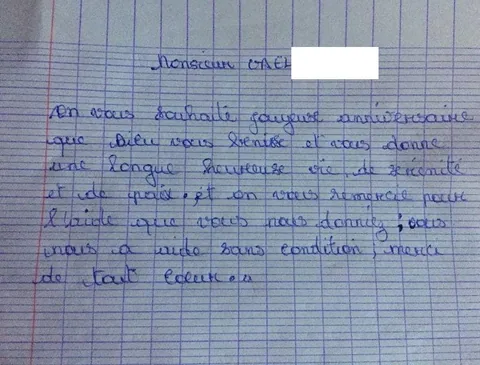 Monsieur VAEL
on vous souhaite joyeuse anniversaire
que Dieu vous bénisse et vous donne
une longue heureuse vie, de sérénité
et de paix. et on vous remercie pour
l'aide que vous nous donnez ; vous
nous a aidé sans condition, merci
de tout coeur.